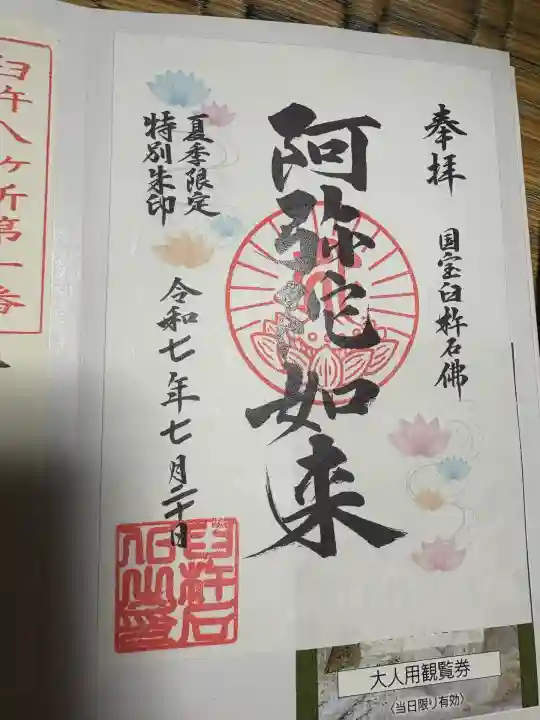 奉拝
国宝臼杵石佛
阿弥陀如来
夏季限定
特別朱印
令和七年七月二十日
臼杵八ヶ所第一番
大人用観覧券
〈当日限り有効〉